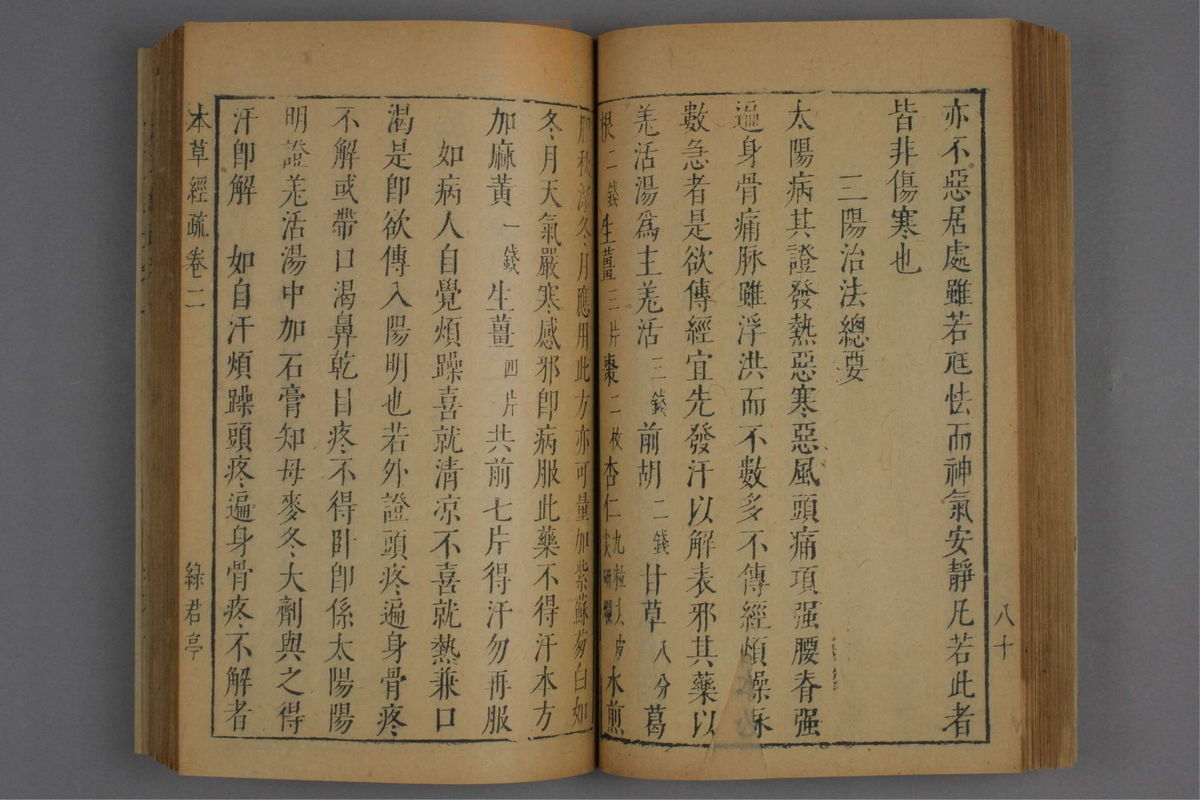 八十
亦不惡居處雖若尫怯而神氣安靜凡若此者
皆非傷寒也
三陽治法總要
太陽病其證發熱惡寒惡風頭痛項强腰脊强
遍身骨痛脉雖浮洪而不數多不傳經煩躁脉
數急者是欲傳經宜先發汗以解表邪其藥以
羌活湯爲主羌活三錢前胡二錢甘草八分葛
根二錢生薑三片棗二枚杏仁九粒去皮尖研爛水煎
服秋深冬月應用此方亦可量加紫蘇葱白如
冬月天氣嚴寒感邪卽病服此藥不得汗本方
加麻黃一錢生薑四片共前七片得汗勿再服
如病人自覺煩躁喜就清凉不喜就熱兼口
渴是卽欲傳入陽明也若外證頭疼遍身骨疼
不解或帶口渴鼻乾目疼不得卧卽係太陽陽
明證羌活湯中加石膏知母麥冬大劑與之得
汗卽解 如自汗煩躁頭疼遍身骨疼不解者
本草經疏卷二 綠君亭